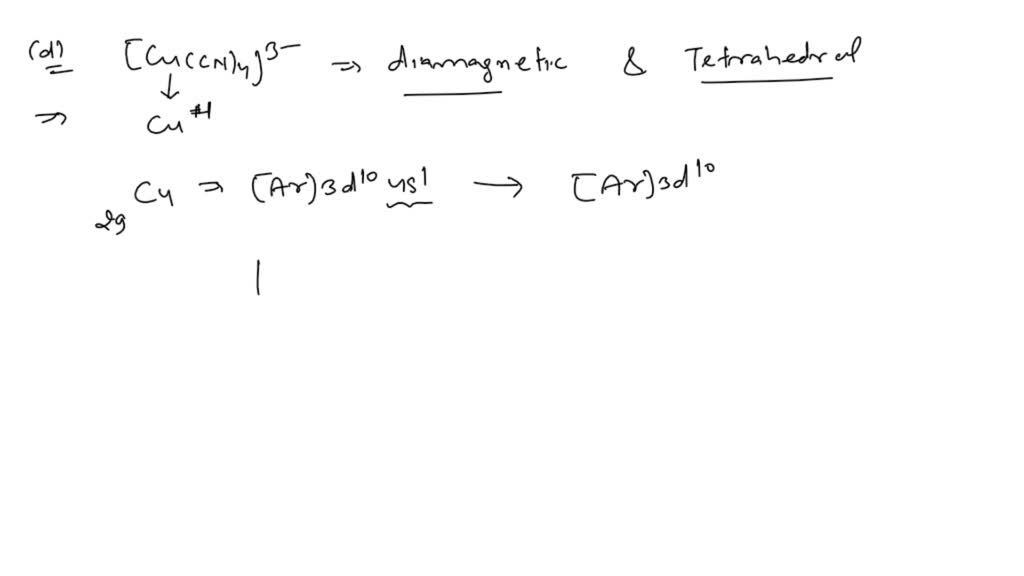 (d) [Cu(CN)4]3- ⇒ diamagnetic & Tetrahedral
↓
⇒ Cu+1
29Cu ⇒ [Ar]3d10 4s1 → [Ar]3d10